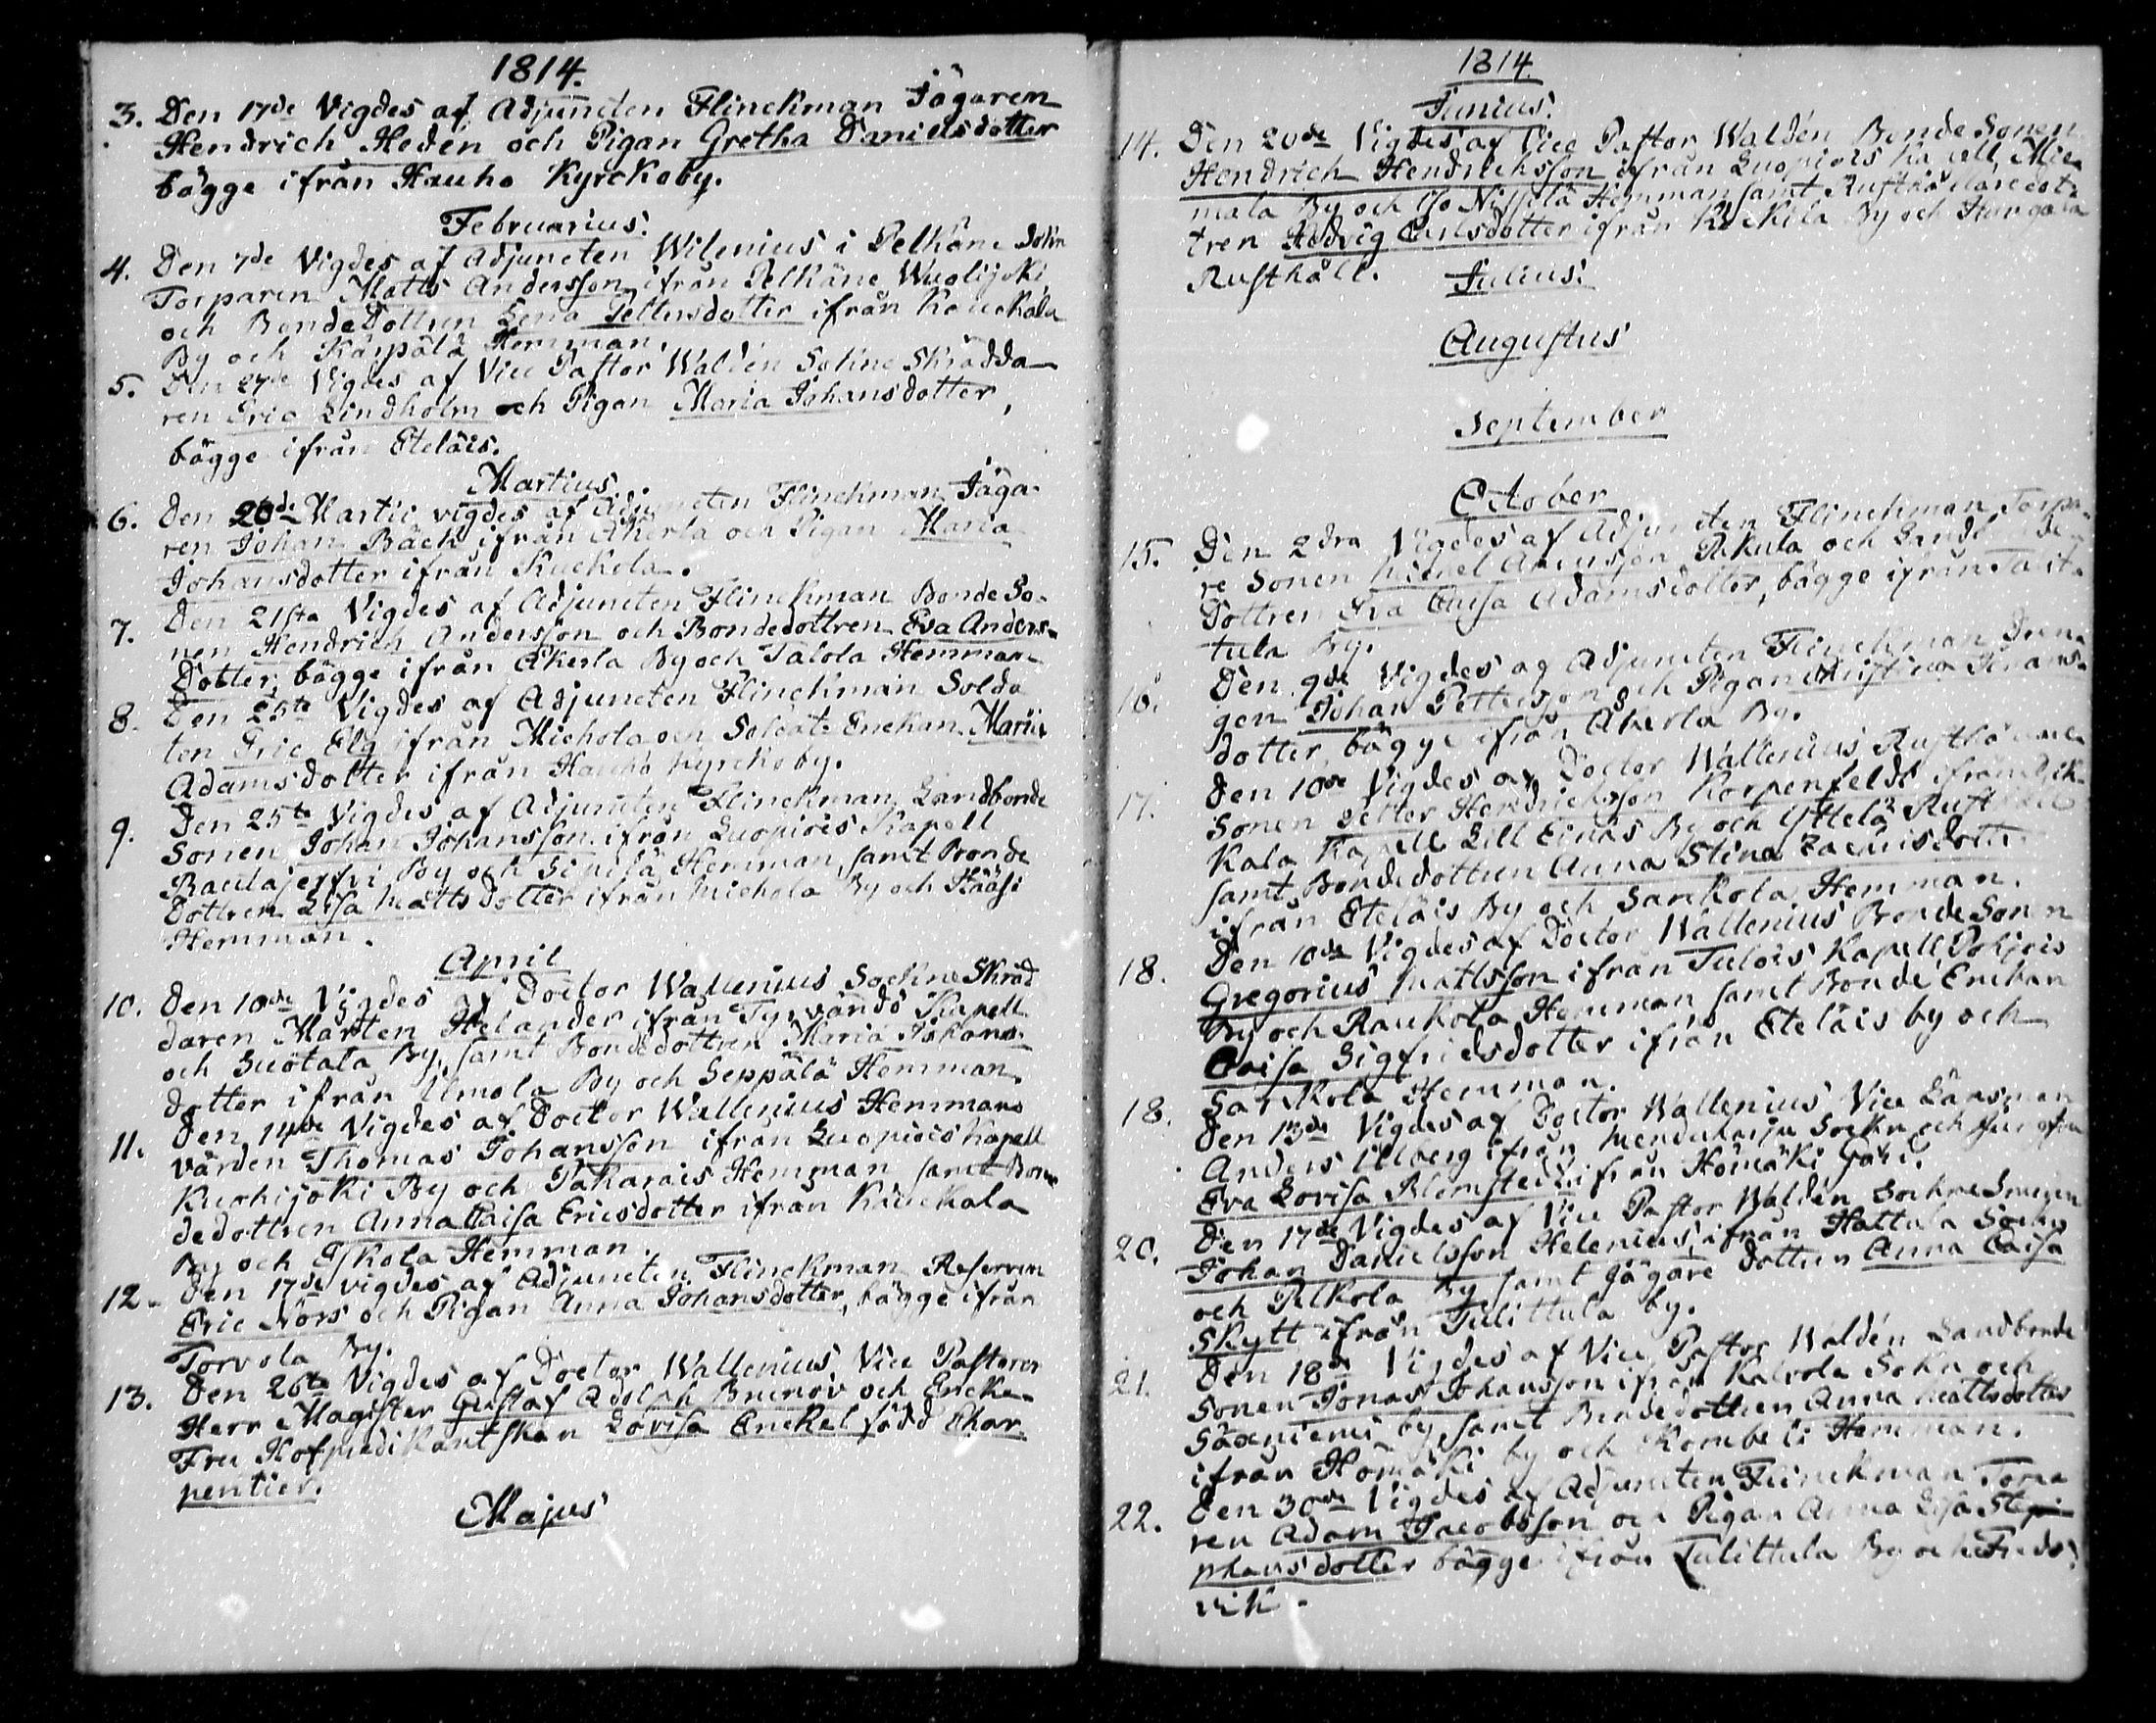 1814.
3. Den 17de Vigdes af Adjuncten Flinckman Jägaren
Hendrich Hedén och Pigan Gretha Danielsdotter
bägge ifrån Hauho Kyrckoby.
Februarius.
4. Den 7de Vigdes af Adjuncten Wilenius i Pelkäne
Torparen Matts Andersson ifrån Pelkäne Wuolijoki
och BondeDottren Lena Pettersdotter ifrån
By och Kärpälä Hemman.
5. Den 27de Vigdes af Vice Pastor Waldén Sokne Skrädda
ren Eric Lindholm och Pigan Maria Johansdotter,
bägge ifrån Eteläis.
Martius
6. Den 20de Martii vigdes af Adjuncten Flinckman Jäga-
ren Johan Bäck ifrån Åkerla och Pigan Maria
Johansdotter ifrån Kuckola.
7. Den 21sta Vigdes af Adjuncten Flinckman Bonde So-
nen Hendrich Andersson och Bondedottren Eva Anders-
Dotter, bägge ifrån Åkerla By och Talola Hemman
8. Den 25te Vigdes af Adjuncten Flinckman Solda
ten Eric Elg ifrån Miehola och Soldate Enckan Maria
Adamsdotter ifrån Hauho Kyrckoby.
9. Den 25te Vigdes af Adjuncten Flinckman Landbonde
Sonen Johan Johansson ifrån Luopiois Kapell
Rautajerfvi By och Sipilä Hemman, samt Bonde
Dottren Lisa Mattsdotter ifrån Miehola By och Hääsi
Hemman.
April
10. Den 10de Vigdes af Doctor Wallenius Sockne Skräd
daren Mårten Helander ifrån Tyrvändö Kapell
och Suotala By, samt Bondedottren Maria
dotter ifrån Ilmola By och Seppälä Hemman.
11. Den 14de Vigdes af Doctor Wallenius Hemmans
värden Thomas Johansson ifrån Luopiois Kapell
Kuohijoki By och Pakarais Hemman samt Bon
dedottren Anna Caisa Ericsdotter ifrån
By och Eskola Hemman.
12. Den 17de vigdes af Adjuncten Flinckman Reserven
Eric Nors och Pigan Anna Johansdotter, bägge ifrån
Torvola By.
13. Den 26te Vigdes af Doctor Wallenius Vice Pastoren
Herr Magister Gustaf Adolph Brunow och Encke-
Fru Hofpredikantskan Lovisa Enckel född Char
pentier.
Majus
1814.
Junius.
14. Den 20de Vigdes af Vice Pastor Waldén Bonde Sonen
Hendrich Hendrichsson ifrån Luopiois Kapell, Mie-
mala By och Iso Nissilä Hemman samt Rusthållaredot-
tren Hedvig Carlsdotter ifrån Kuckola By och
Rusthåll.
Julius.
Augustus
September
October
15. Den 2dra Vigdes af Adjuncten Flinckman Torpa-
re Sonen Michel Andersson Pekula och Landbonde
Dottren Eva Caisa Adamsdotter, bägge ifrån
tula By.
16. Den 9de Vigdes af Adjuncten Flinckman Dren-
gen Johan Pettersson och Pigan Christina Johans-
dotter, bägge ifrån Åkerla By.
17. Den 10de Vigdes af Doctor Wallenius Rusthållare
Sonen Petter Hendricksson Korpenfeldt ifrån
Kala Kapell Lill Einäs By och Yttelä Rusthåll
samt Bondedottren Anna Stina
ifrån Eteläis By och Sarckola Hemman.
18. Den 10de Vigdes af Doctor Wallenius Bonde Sonen
Gregorius Mattsson ifrån Tulois Kapell, Pohjois
By och Raukola Hemman samt Bonde Enckan
Caisa Sigfridsdotter ifrån Eteläis by och
Sarkola Hemman.
18. Den 13de Vigdes af Doctor Wallenius Vice Länsman
Anders Ulberg ifrån Mendeharju Sockn och Jungfru
Eva Lovisa Blomstedt ifrån Hömäki Gård.
20. Den 17de Vigdes af Vice Pastor Waldén Sockne Smeden
Johan Danielsson Helenius, ifrån Hattula Sockn
och Pelkola By samt Jägare Dottren Anna Caisa
Skytt ifrån Tulittula by.
21. Den 18de Vigdes af Vice Pastor Waldén Landbonde
Sonen Jonas Johansson ifrån Kalvola Sokn och
Säxniemi by, samt Bondedottren Anna Mattsdotter
ifrån Hömäki by och Hemman.
22. Den 30de Vigdes af Adjuncten Flinckman Torpa
ren Adam Jacobsson och Pigan Anna Lisa Ste
phansdotter bägge ifrån Tulittula By och Freds-
vik.